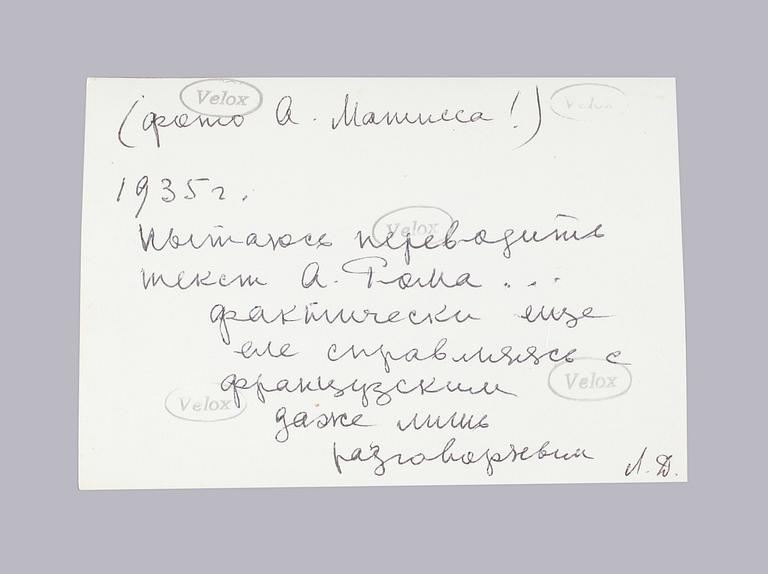 Velox
Velox
(фото А. Матисса!)
1935 г.
Velox
пытаюсь переводить
текст А. Рома...
фактически еще
еле справляясь с
французским
Velox
Velox
даже лишь
разговорным
Л.Д.